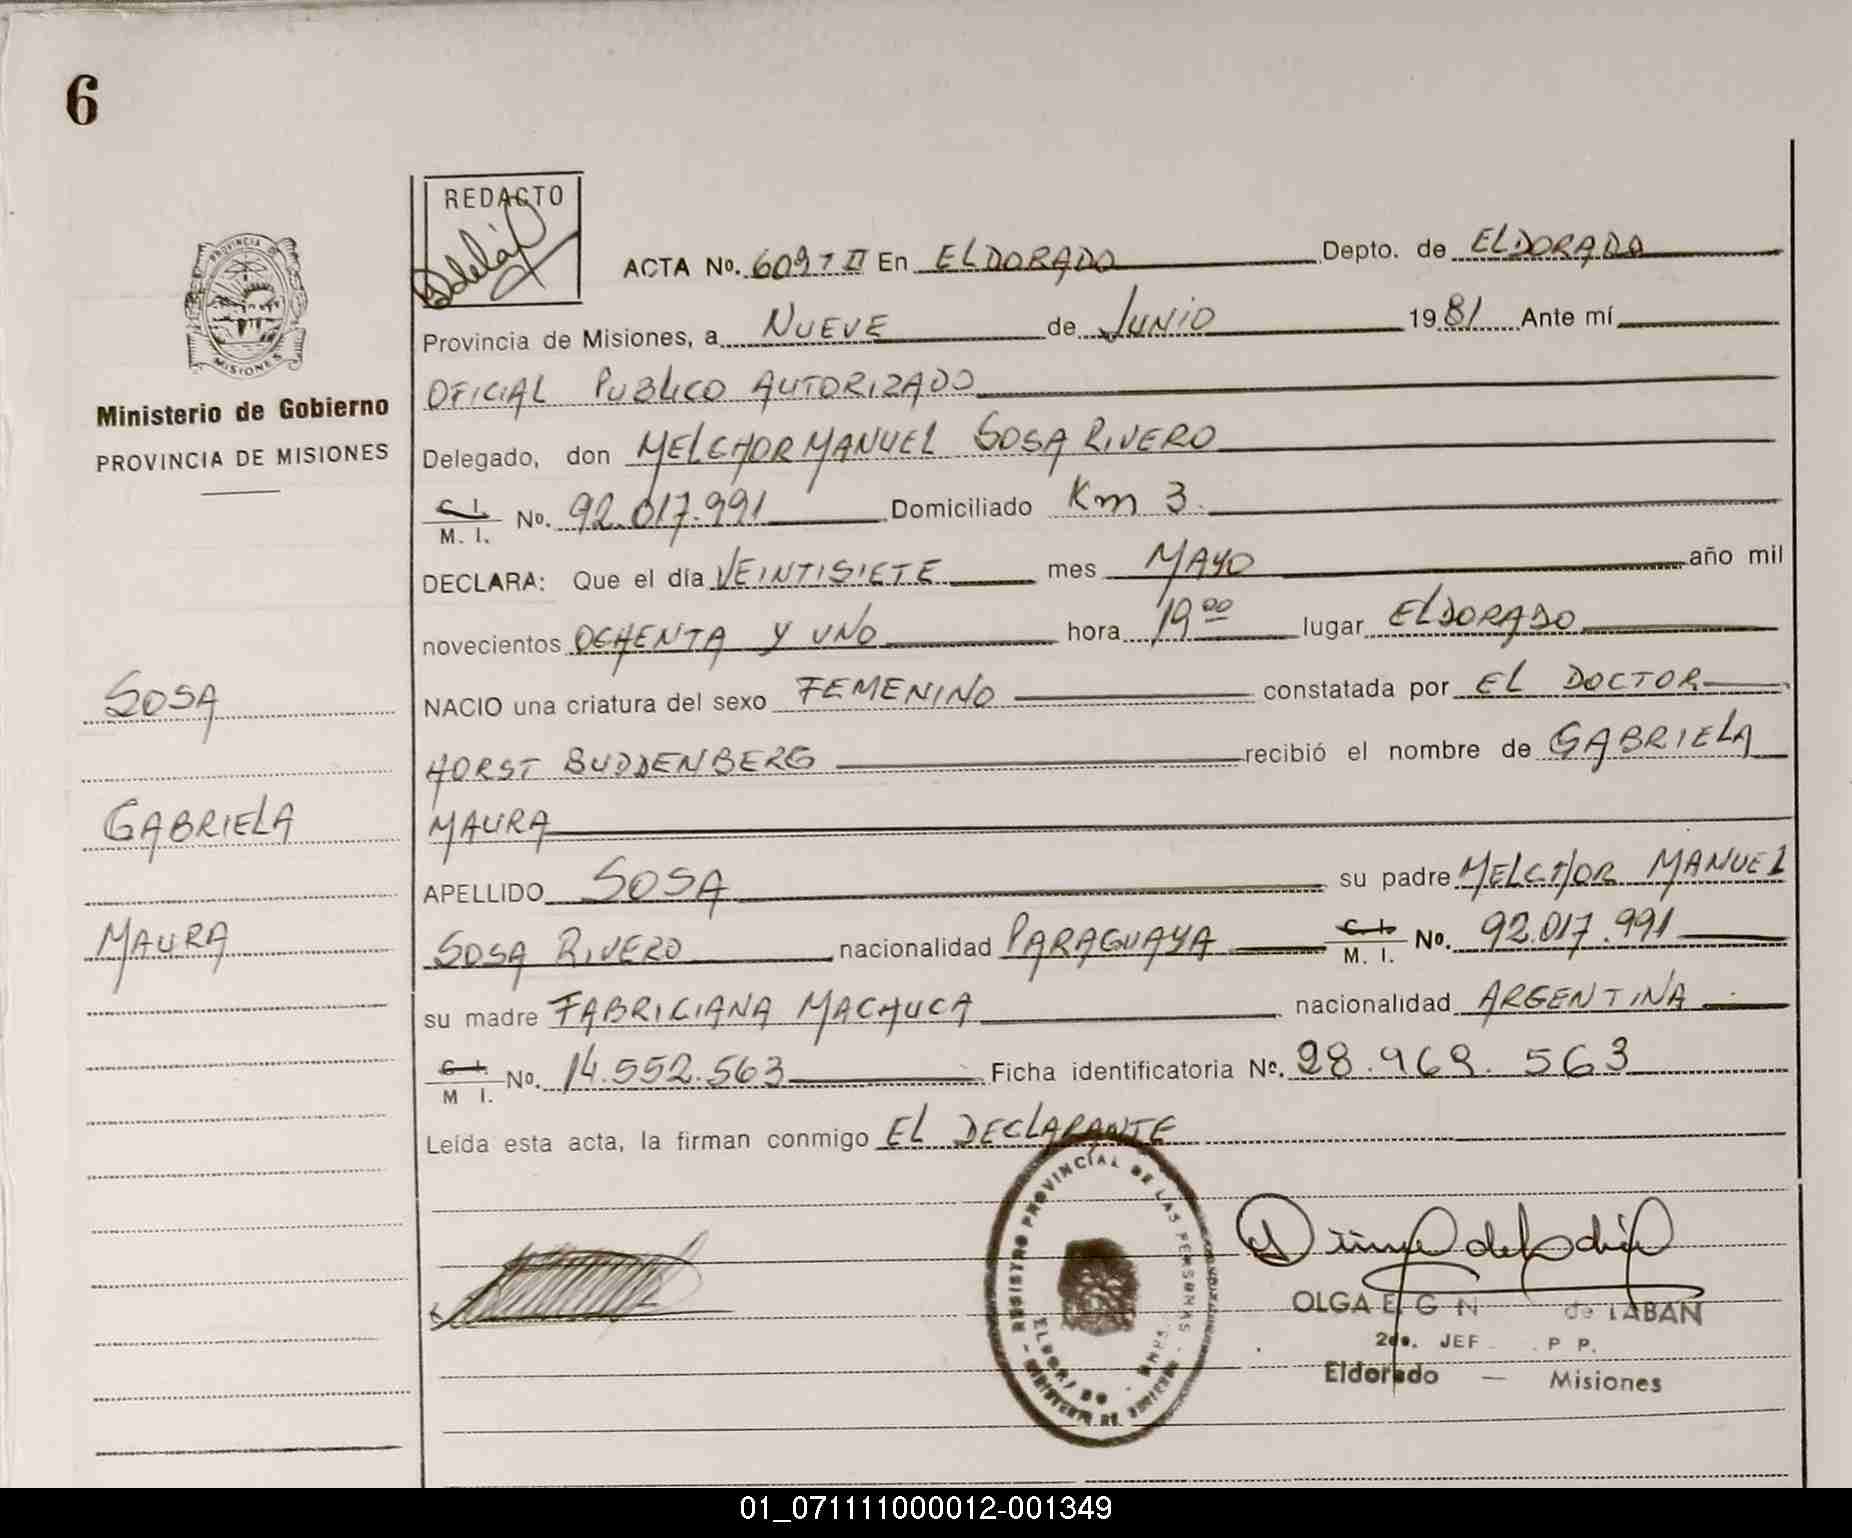 6
REDACTO
ACTA No. 6097 II En ELDORADO Depto. de ELDORADO
Provincia de Misiones, a NUEVE de JUNIO 1981 Ante mí
OFICIAL PUBLICO AUTORIZADO
Delegado, don MELCHOR MANUEL SOSA RIVERO
C. I.
M. I. No. 92.017.991 Domiciliado Km 3.
DECLARA: Que el día VEINTISIETE mes MAYO año mil
novecientos OCHENTA Y UNO hora 19 00 lugar ELDORADO
NACIO una criatura del sexo FEMENINO constatada por EL DOCTOR
HORST BUDDENBERG recibió el nombre de GABRIELA
MAURA
APELLIDO SOSA su padre MELCHOR MANUEL
SOSA RIVERO nacionalidad PARAGUAYA C. I. M. I. No. 92.017.991
su madre FABRICIANA MACHUCA nacionalidad ARGENTINA
C. I.
M I. No. 14.552.563 Ficha identificatoria No. 28.969.563
Leída esta acta, la firman conmigo EL DECLARANTE
PROVINCIA DE
MISIONES
Ministerio de Gobierno
PROVINCIA DE MISIONES
SOSA
GABRIELA
MAURA
REGISTRO PROVINCIAL DE LAS PERSONAS
ELDORADO
OLGA E. G N de LABAN
2do. JEF P P.
Eldorado — Misiones
01_071111000012-001349